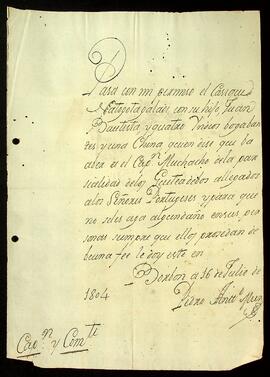 Pasa con mi permiso el Casique
con su hijo Juan
Bautista, y quatro Yndios bogaban
tes y una China quien dise que ba
a ber a el Muchacho de la par
sialidad de los allegados
a los Señores Portugeses y para que
no seles aga algun daño en sus per
sonas siempre que ellos prosedan de
buena fee le doy este en
Borbon a 16 de Julio de
1804
Pedro Anto
Capn y Comte